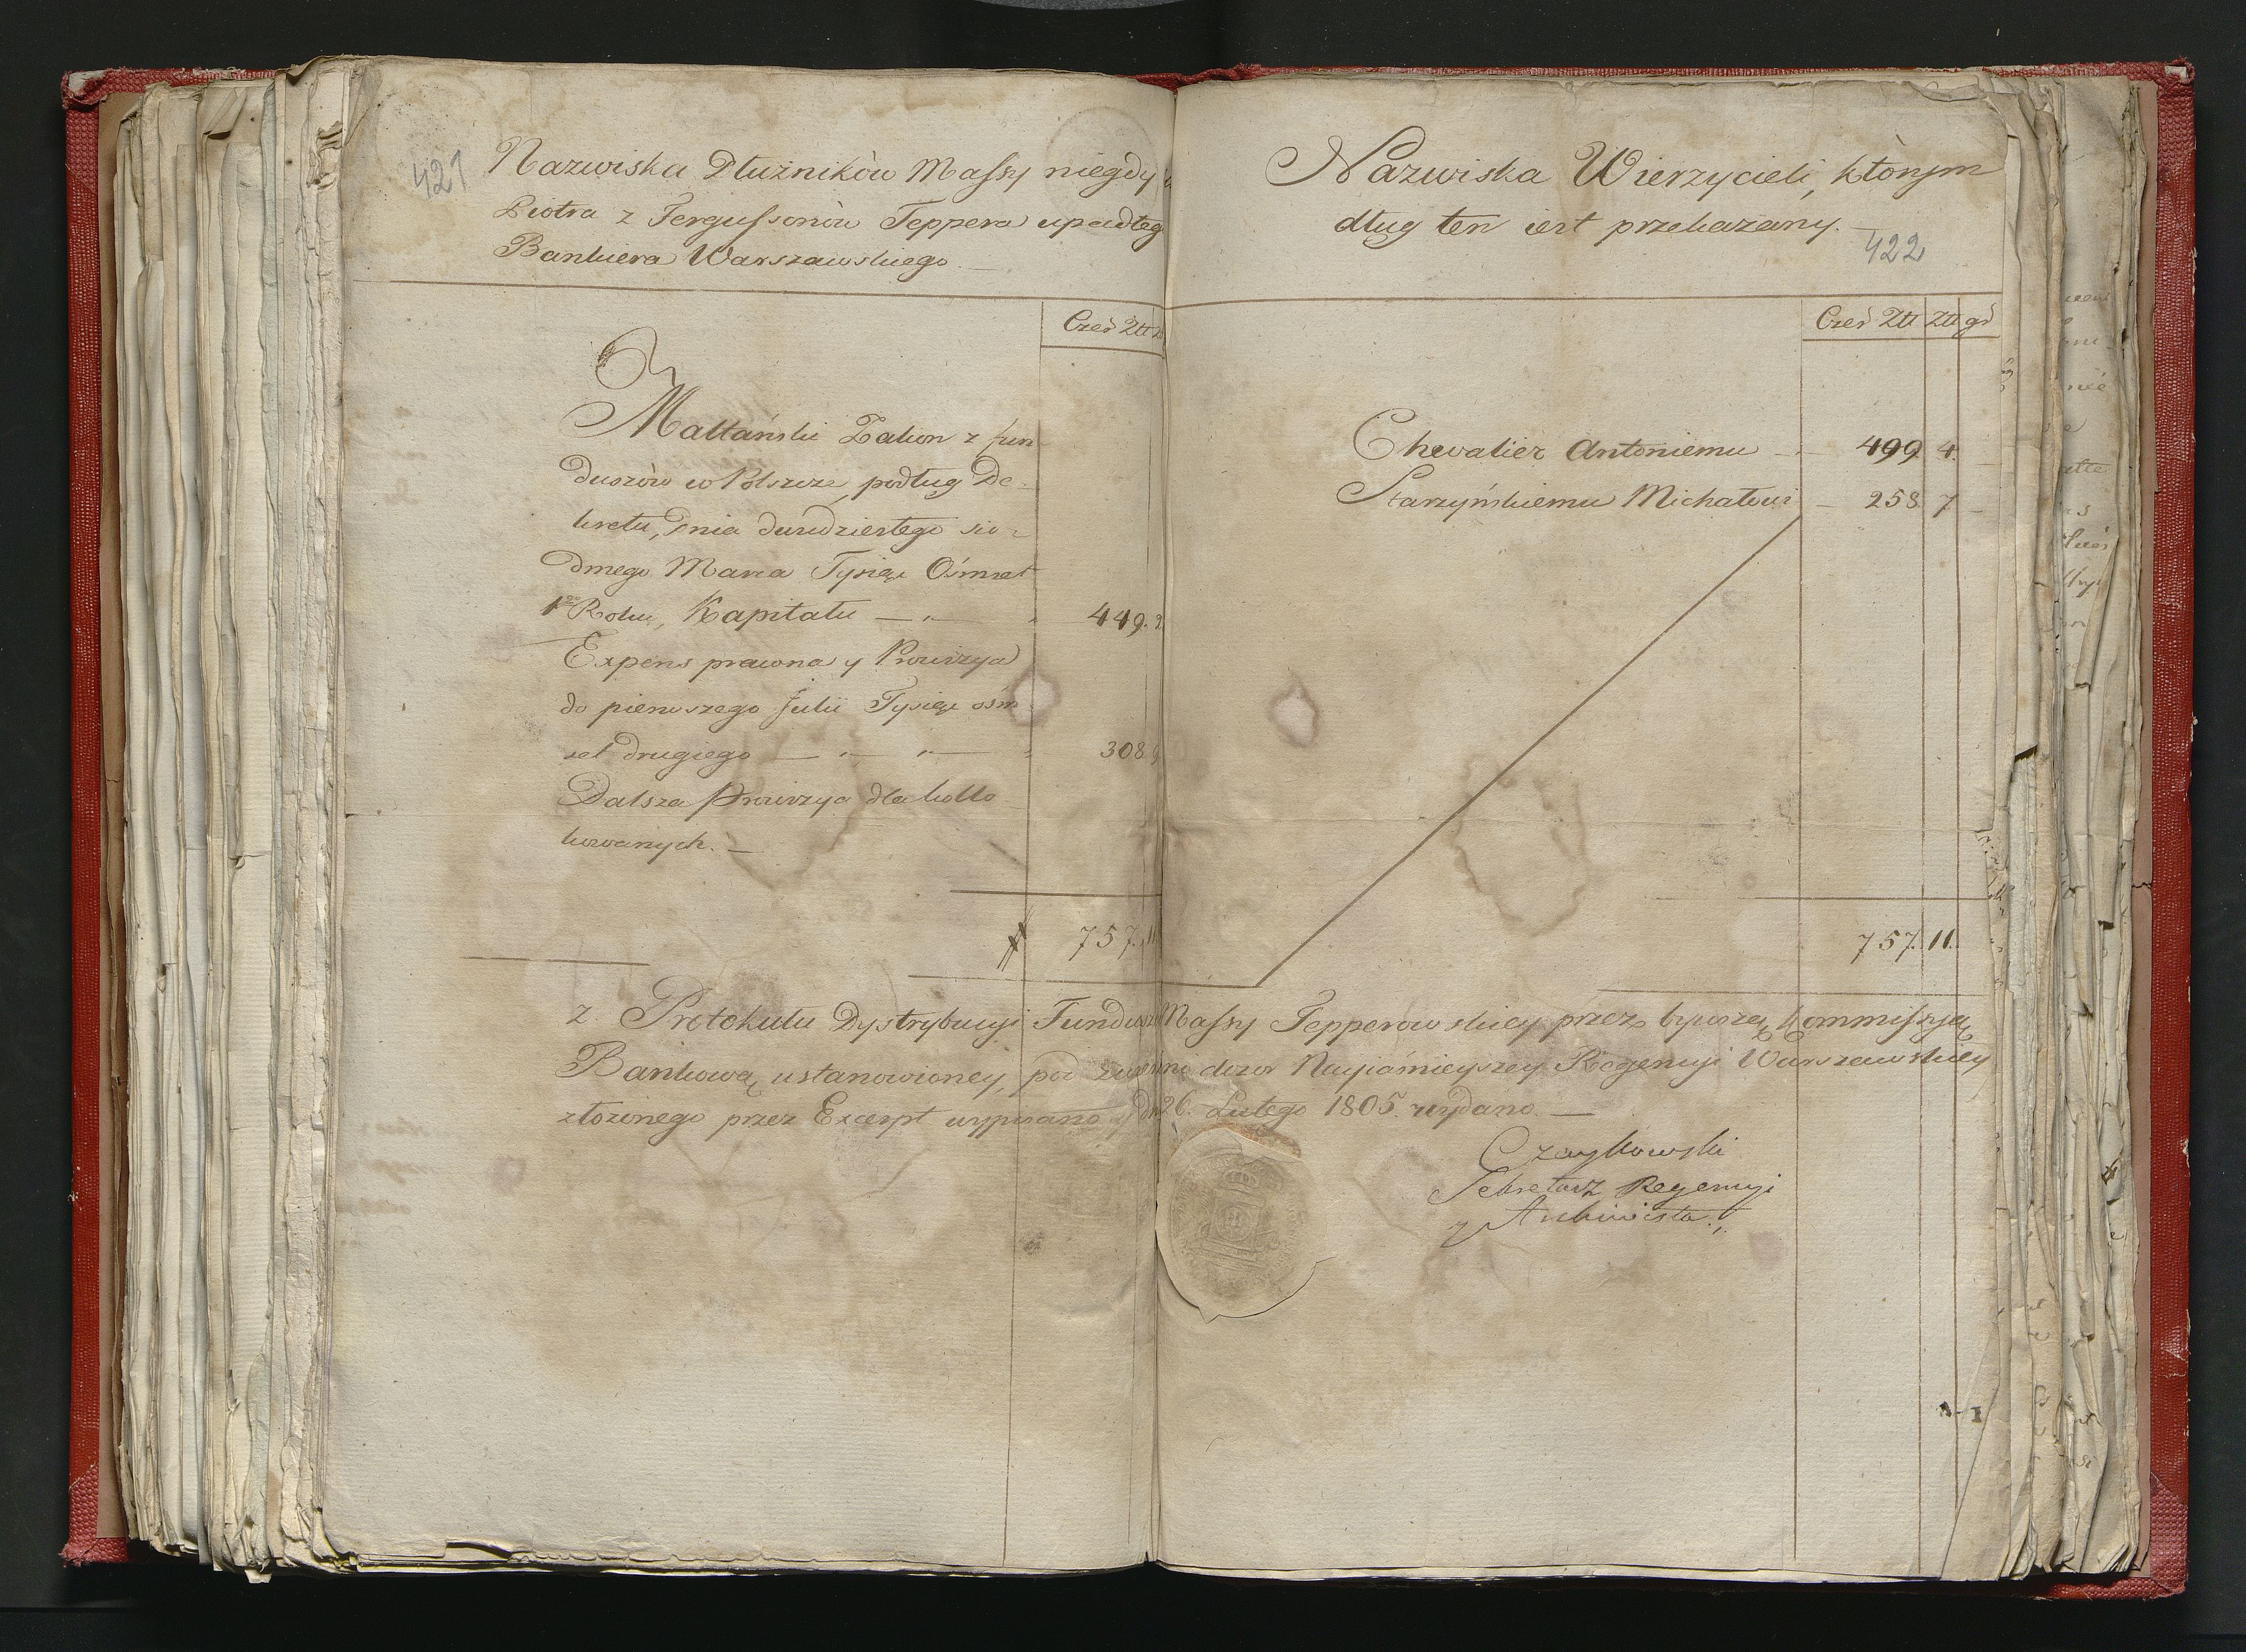 421
Nazwiska Dłużników Massy niegdy
Piotra z Fergussonów Teppera upadłeg
Bankiera Warszawskiego. —
Czer Złł
Maltański Zakon z fun-
duszów w Polszcze, podług De-
kretu, Dnia dwudziestego sió-
dmego Marca Tysiąc Ośmset
1go Roku, Kapitału — 449. 2
Expens prawna y Prowizya
do pierwszego Julii Tysiąc ośm
set drugiego — 308 9
Dalsza Prowizya dla kollo
kowanych. —
# 757. 11
Nazwiska Wierzycieli, którym
dług ten iest przekazany.
422
Czer Złł Złł gr
Chevalier Antoniemu — 499 4. —
Starzyńskiemu Michałowi — 258 7 —
757. 11.
z. Protokułu Dystrybucyi Fundusz Massy Tepperowskiey przez bywszą Kommissyą
Bankową ustanowioney, pod dozor Nayiaśnieyszey Regencyi Warszawskiey
złożonego przez Excerpt wypisano y dn 26. Lutego 1805. wydano. —
Czaykowski
Sekretarz Regencyi
y Archiwista